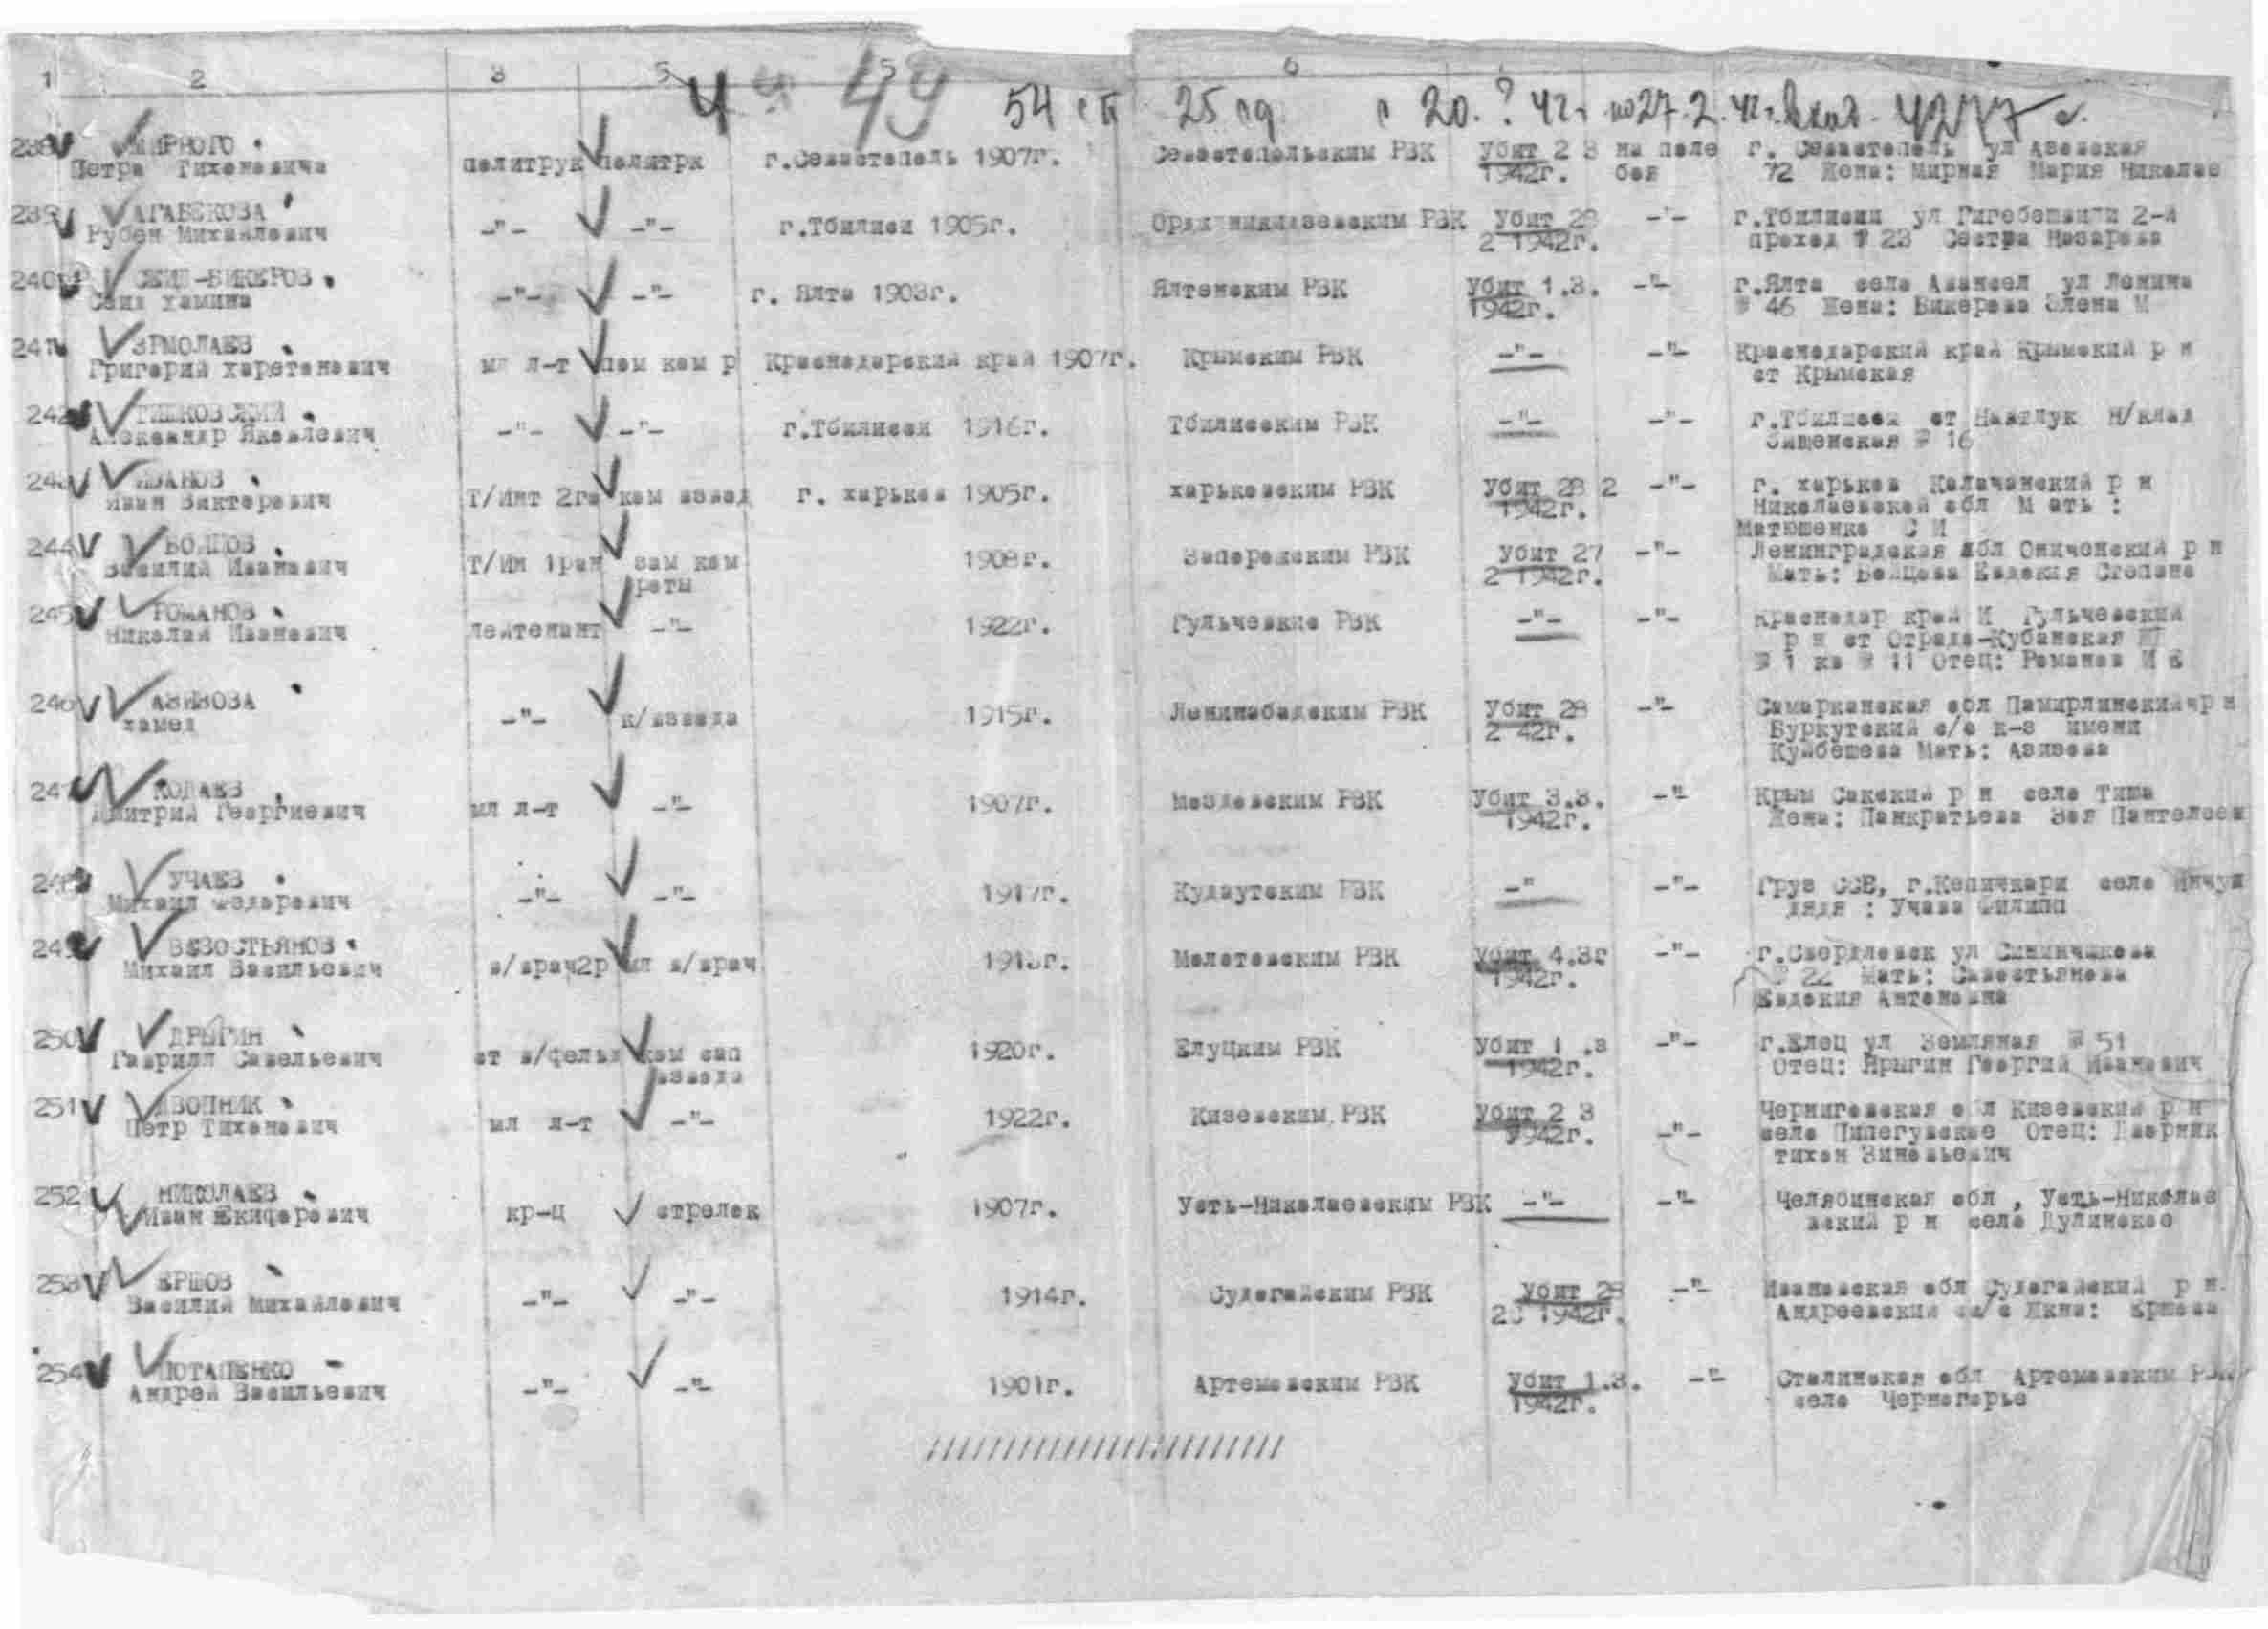 1 2 3 5 5 6
4 49 54 сп 25 сд с 20. ? 42г. по 27.2.42г. вход. 4277с.
238 МИРНОГО политрук политрк г.Севастополь 1907г. Севастопольским РВК Убит 2 3 на поле г. Севастополь ул Азовская
Петра Тихоновича 1942г. боя 72 Жена: Мирная Мария Николае
239 АГАБЕКОВА -"- -"- г.Тбилиси 1905г. Орджоникидзевским РВК Убит 28 -"- г.Тбилиси ул 2-й
Рубен Михайлович 2 1942г. проезд № 23 Сестра Назарова
240 СЕИД-БИКЕРОВ -"- -"- г. Ялта 1903г. Ялтенским РВК Убит 1.3. -"- г.Ялта село ул Ленина
Саид хамина 1942г. № 46 Жена: Бикерова Элена М
241 ЭРМОЛАЕВ мл л-т пом ком р Краснодарский край 1907г. Крымским РВК -"- -"- Краснодарский край Крымский р н
Григорий харетонович ст Крымская
242 ТИШКОВСКИЙ -"- -"- г.Тбилиси 1916г. Тбилисским РВК -"- -"- г.Тбилиси ст Навтлук Н/клад
Александр Яковлевич № 16
243 ИВАНОВ Т/Инт 2го ком взвод г. харьков 1905г. харьковским РВК Убит 28 2 -"- г. харьков Калачанский р н
Иван Викторович 1942г. Николаевской обл М ать :
Матюшенко С И
244 ВОЙЦОВ Т/Ин 1ран зам ком 1908г. Запорожским РВК Убит 27 -"- Ленинградская обл Оничонский р н
Василий Иванович роты 2 1942г. Мать: Войцова Евдокия Степано
245 РОМАНОВ лейтенант -"- 1922г. Гульчевкие РВК -"- -"- Краснодар край И Гульчевский
Николай Иванович р н ст Отрадо-Кубанская
№ 1 кв № 11 Отец: Романов И Е
246 АЗИЗОВА -"- к/взвода 1915г. Ленинабадским РВК Убит 28 -"- Самарканская обл Памирлинский р н
хамед 2 42г. Буркутский с/с к-з имени
Куйбешева Мать: Азизова
247 КОЛАЕВ мл л-т -"- 1907г. Моздовским РВК Убит 3.3. -"- Крым Сакский р н село Тиша
Дмитрий Георгиевич 1942г. Жена: Панкратьева Зоя Пантелеев
248 УЧАЕВ -"- -"- 1917г. Кудаутским РВК -" -"- Груз ССЕ, г.Копичкари село
Михаил Федорович дядя : Учава Филипп
249 ВЕЗОСТЬЯНОВ в/врач2р мл в/врач 1913г. Молотовским РВК Убит 4.3г -"- г.Свердловск ул
Михаил Васильевич 1942г. № 22 Мать: Савостьянова
Евдокия Антоновна
250 ДРЫГИН ст в/фельд ком сап 1920г. Елуцким РВК Убит 1 .3 -"- г.Елец ул Земляная № 51
Гаврилл Савельевич взвода 1942г. Отец: Ярыгин Георгий Иванович
251 ДВОПНИК мл л-т -"- 1922г. Кизевским РВК Убит 2 3 Черниговская обл Кизевский р н
Петр Тихонович 1942г. -"- село Пипегувское Отец: Дворник
тихон Зиновьевич
252 НИКОЛАЕВ кр-ц стрелек 1907г. Усть-Николаевским РВК -"- -"- Челябинская обл , Усть-Николае
Иван вский р н село Дулинское
253 ЕРШОВ -"- -"- 1914г. Судогайским РВК Убит 28 -"- Ивановская обл Судогайский р н.
Василий Михайлович 1942г. Андреевский с/с Жкна: Ершова
254 ПОТАПЕНКО -"- -"- 1901г. Артемовским РВК Убит 1.3. -"- Сталинская обл Артемовским РВК
Андрей Васильевич 1942г. село Черногорье
////////////////////////